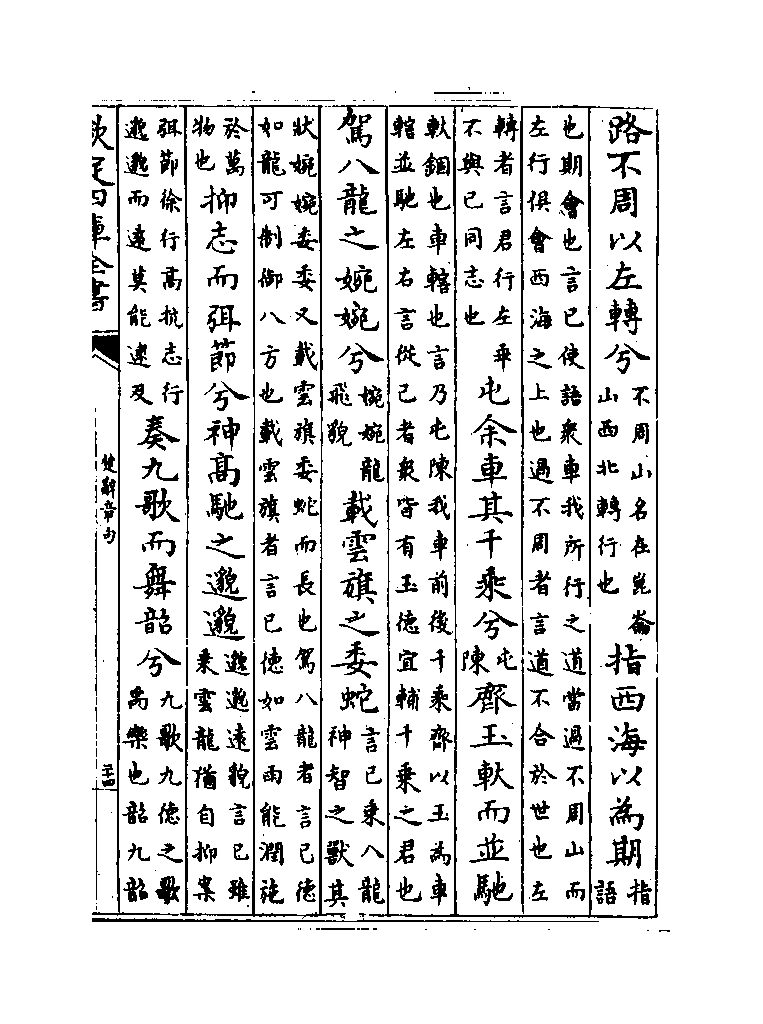 路不周以左轉兮
不周山名在崑崙
山西北轉行也
指西海以為期
指
語
也期會也言已使語衆車我所行之道當過不周山而
左行俱會西海之上也過不周者言道不合於世也左
轉者言君行左乖
不與已同志也
屯余車其千乘兮
屯
陳
齊玉軑而並馳
軑錮也車轄也言乃屯陳我車前後千乘齊以玉為車
轄並馳左右言從已者衆皆有玉德宜輔千乘之君也
駕八龍之婉婉兮
婉婉龍
飛貌
載雲旗之委蛇
言已乘八龍
神智之獸其
狀婉婉委委又載雲旗委蛇而長也駕八龍者言已德
如龍可制御八方也載雲旗者言已德如雲雨能潤施
於萬
物也
抑志而弭節兮神高馳之邈邈
邈邈遠貌言已雖
乘雲龍猶自抑案
弭節徐行高抗志行
邈邈而遠莫能逮及
奏九歌而舞韶兮
九歌九德之歌
禹樂也韶九韶
欽定四庫全書
楚辭章句
二十四